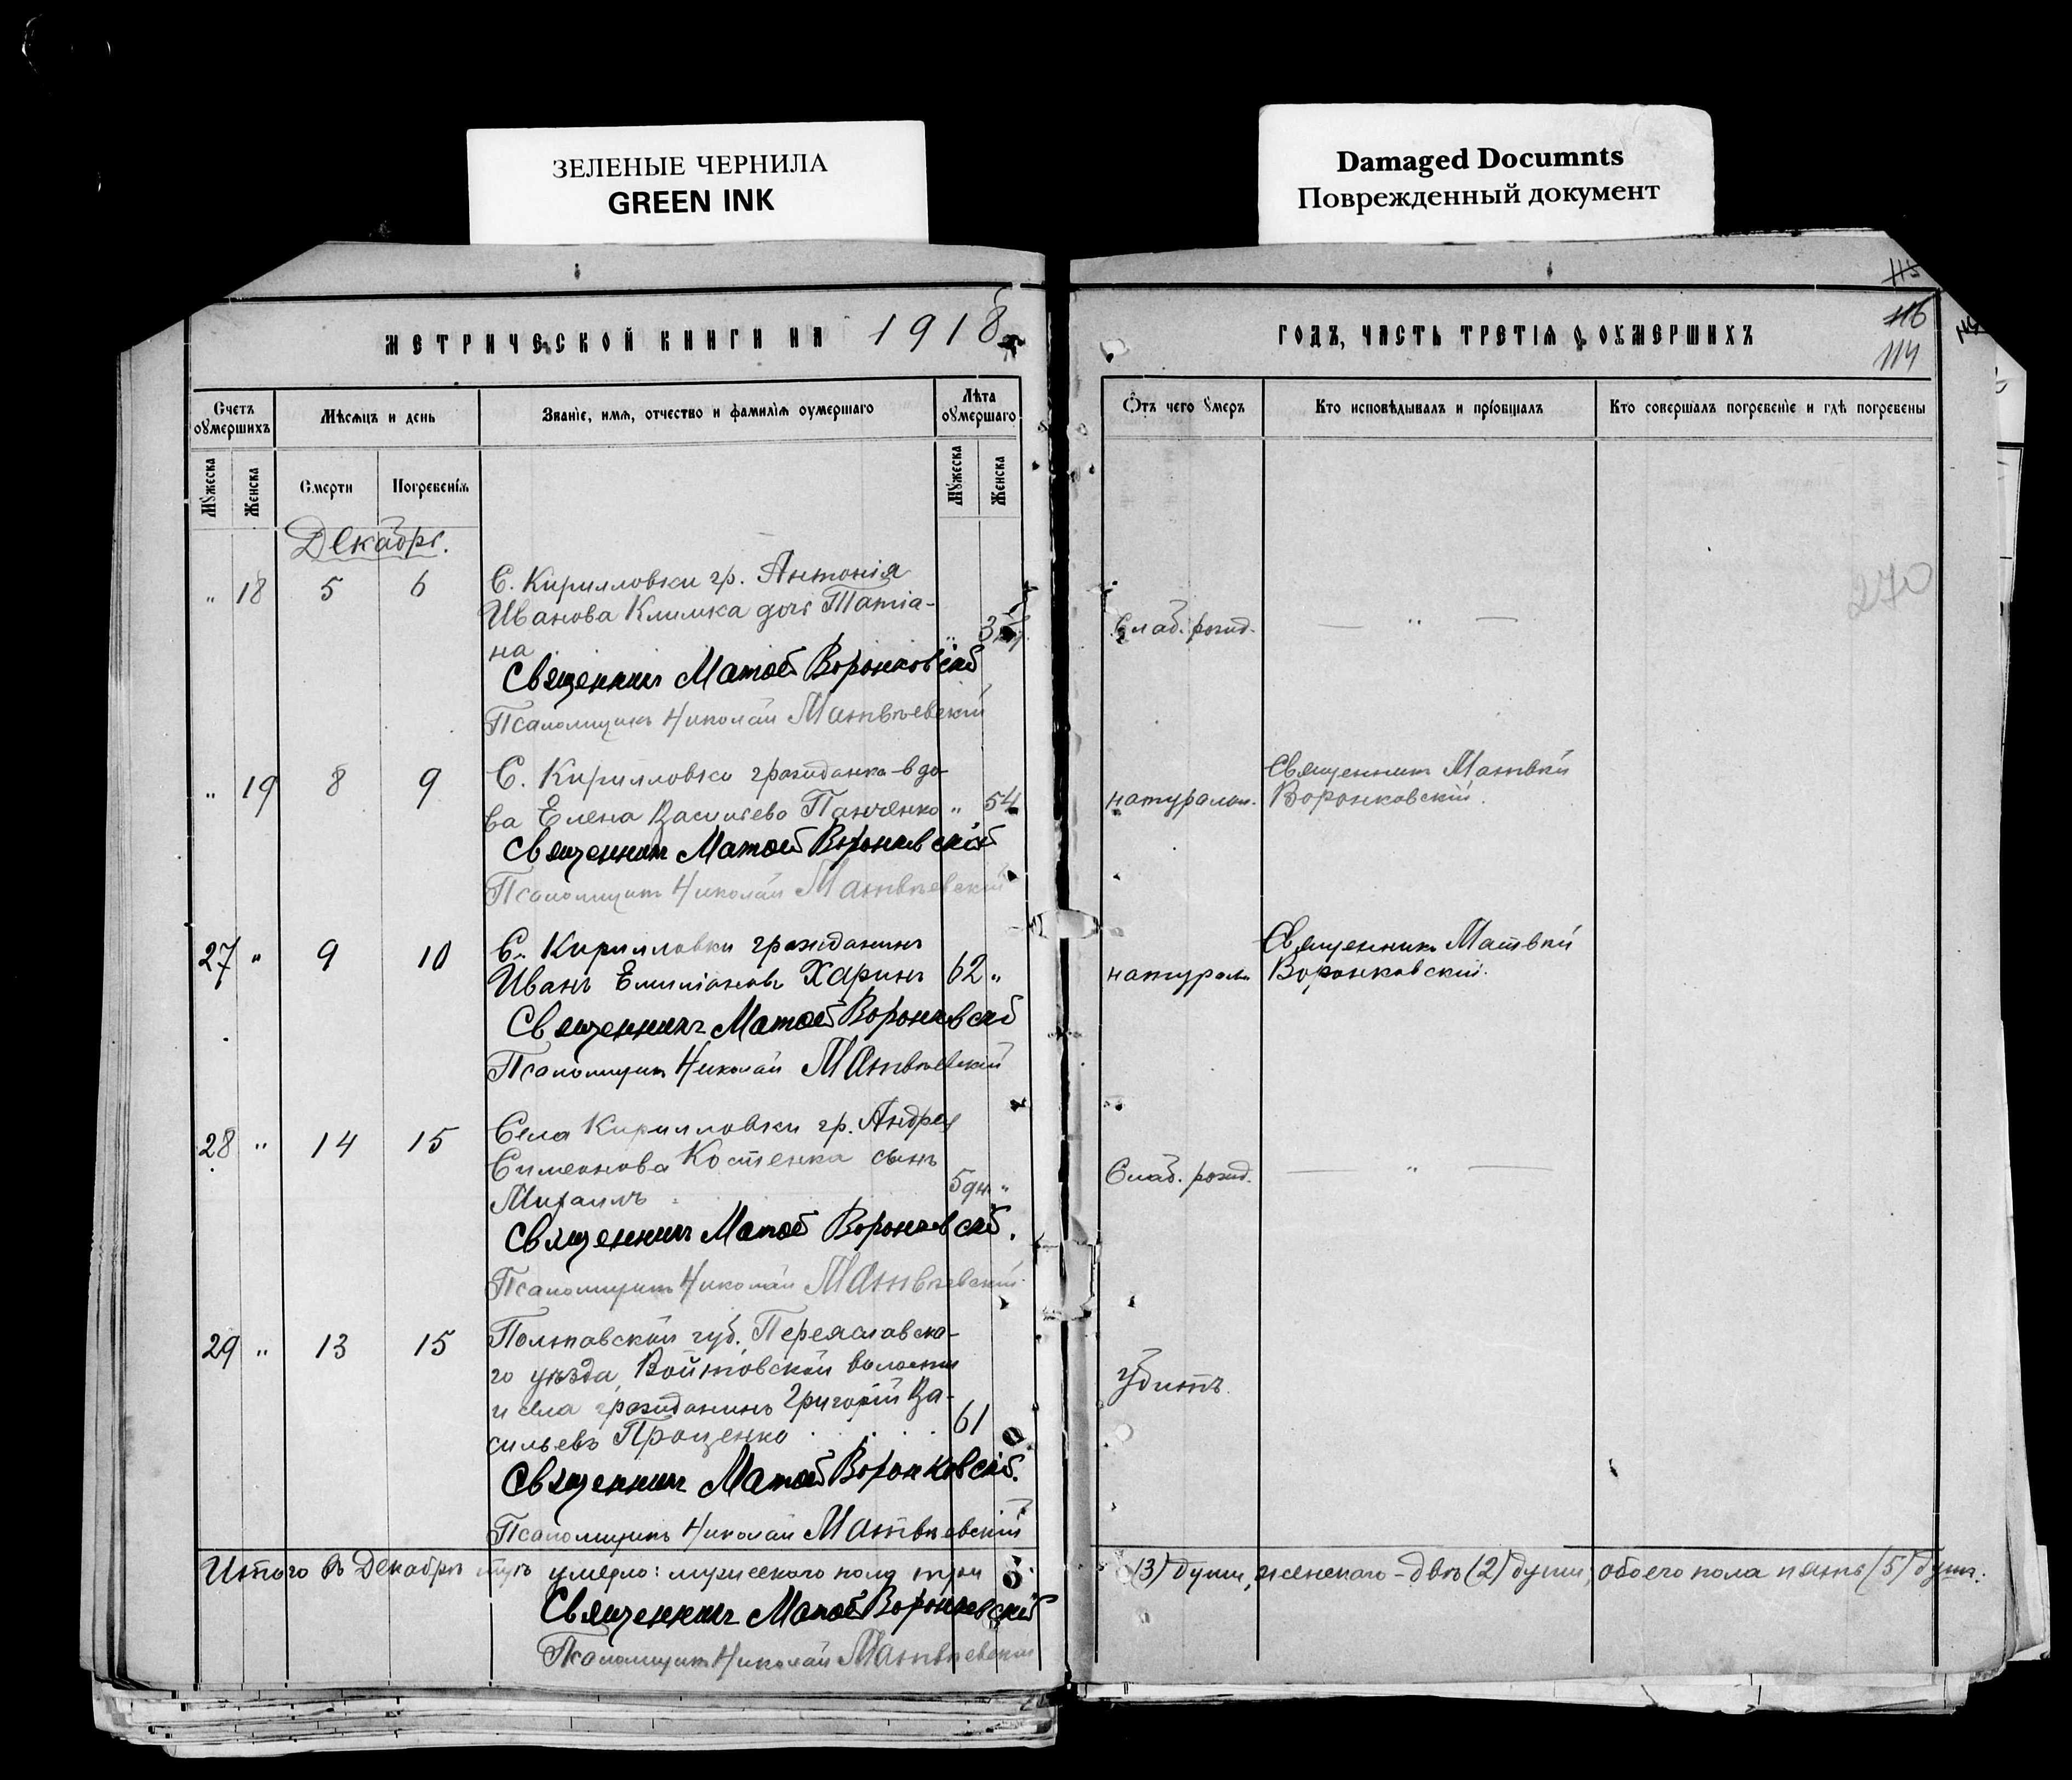 ЗЕЛЕНЫЕ ЧЕРНИЛА
GREEN INK
Damaged Documnts
Поврежденный документ
115
116
114
МЕТРИЧЕСКОЙ КНИГИ НА 1918
ГОДЪ, ЧАСТЬ ТРЕТІѦ О ОУМЕРШИХЪ
Счетъ оумершихъ
Мѣсѧцъ и день
Званіе, имѧ, отчество и фамиліѧ оумершаго
Лѣта оумершаго
Отъ чего умеръ
Кто исповѣдывалъ и пріобщалъ
Кто совершалъ погребеніе и гдѣ погребены
Мужеска
Женска
Смерти
Погребеніѧ
Мужеска
Женска
Декабрь.
270
" 18 5 6 С. Кирилловки гр. Антонія
Иванова Климка дочь Татіа-
на " Слаб. рожд. — " —
Священникъ Матѳей Воронковскій
Псаломщикъ Николай Матвѣевскій
" 19 8 9 С. Кирилловки гражданка-вдо-
ва Елена Васильева Панченко " 54 натуральн. Священникъ Матвѣй
Воронковскій.
Священникъ Матѳей Воронковскій
Псаломщикъ Николай Матвѣевскій
27 " 9 10 С. Кирилловки гражданинъ
Иванъ Емиліановъ Харинъ 62 " натуральн. Священникъ Матвѣй
Воронковскій.
Священникъ Матѳей Воронковскій
Псаломщикъ Николай Матвѣевскій
28 " 14 15 Села Кирилловки гр. Андрея
Симеонова Костенка сынъ
Михаилъ 5 дн. " Слаб. рожд. — " —
Священникъ Матѳей Воронковскій.
Псаломщикъ Николай Матвѣевскій.
29 " 13 15 Полтавской губ. Переяславска-
го уѣзда, Войтовской волости
и села гражданинъ Григорій Ва-
сильевъ Проценко 61 Убитъ.
Священникъ Матѳей Воронковскій.
Псаломщикъ Николай Матвѣевскій
Итого въ Декабрѣ умерло: мужескаго пола три (3) души, женскаго - двѣ (2) души, обоего пола пять (5) душъ.
Священникъ Матѳей Воронковскій
Псаломщикъ Николай Матвѣевскій